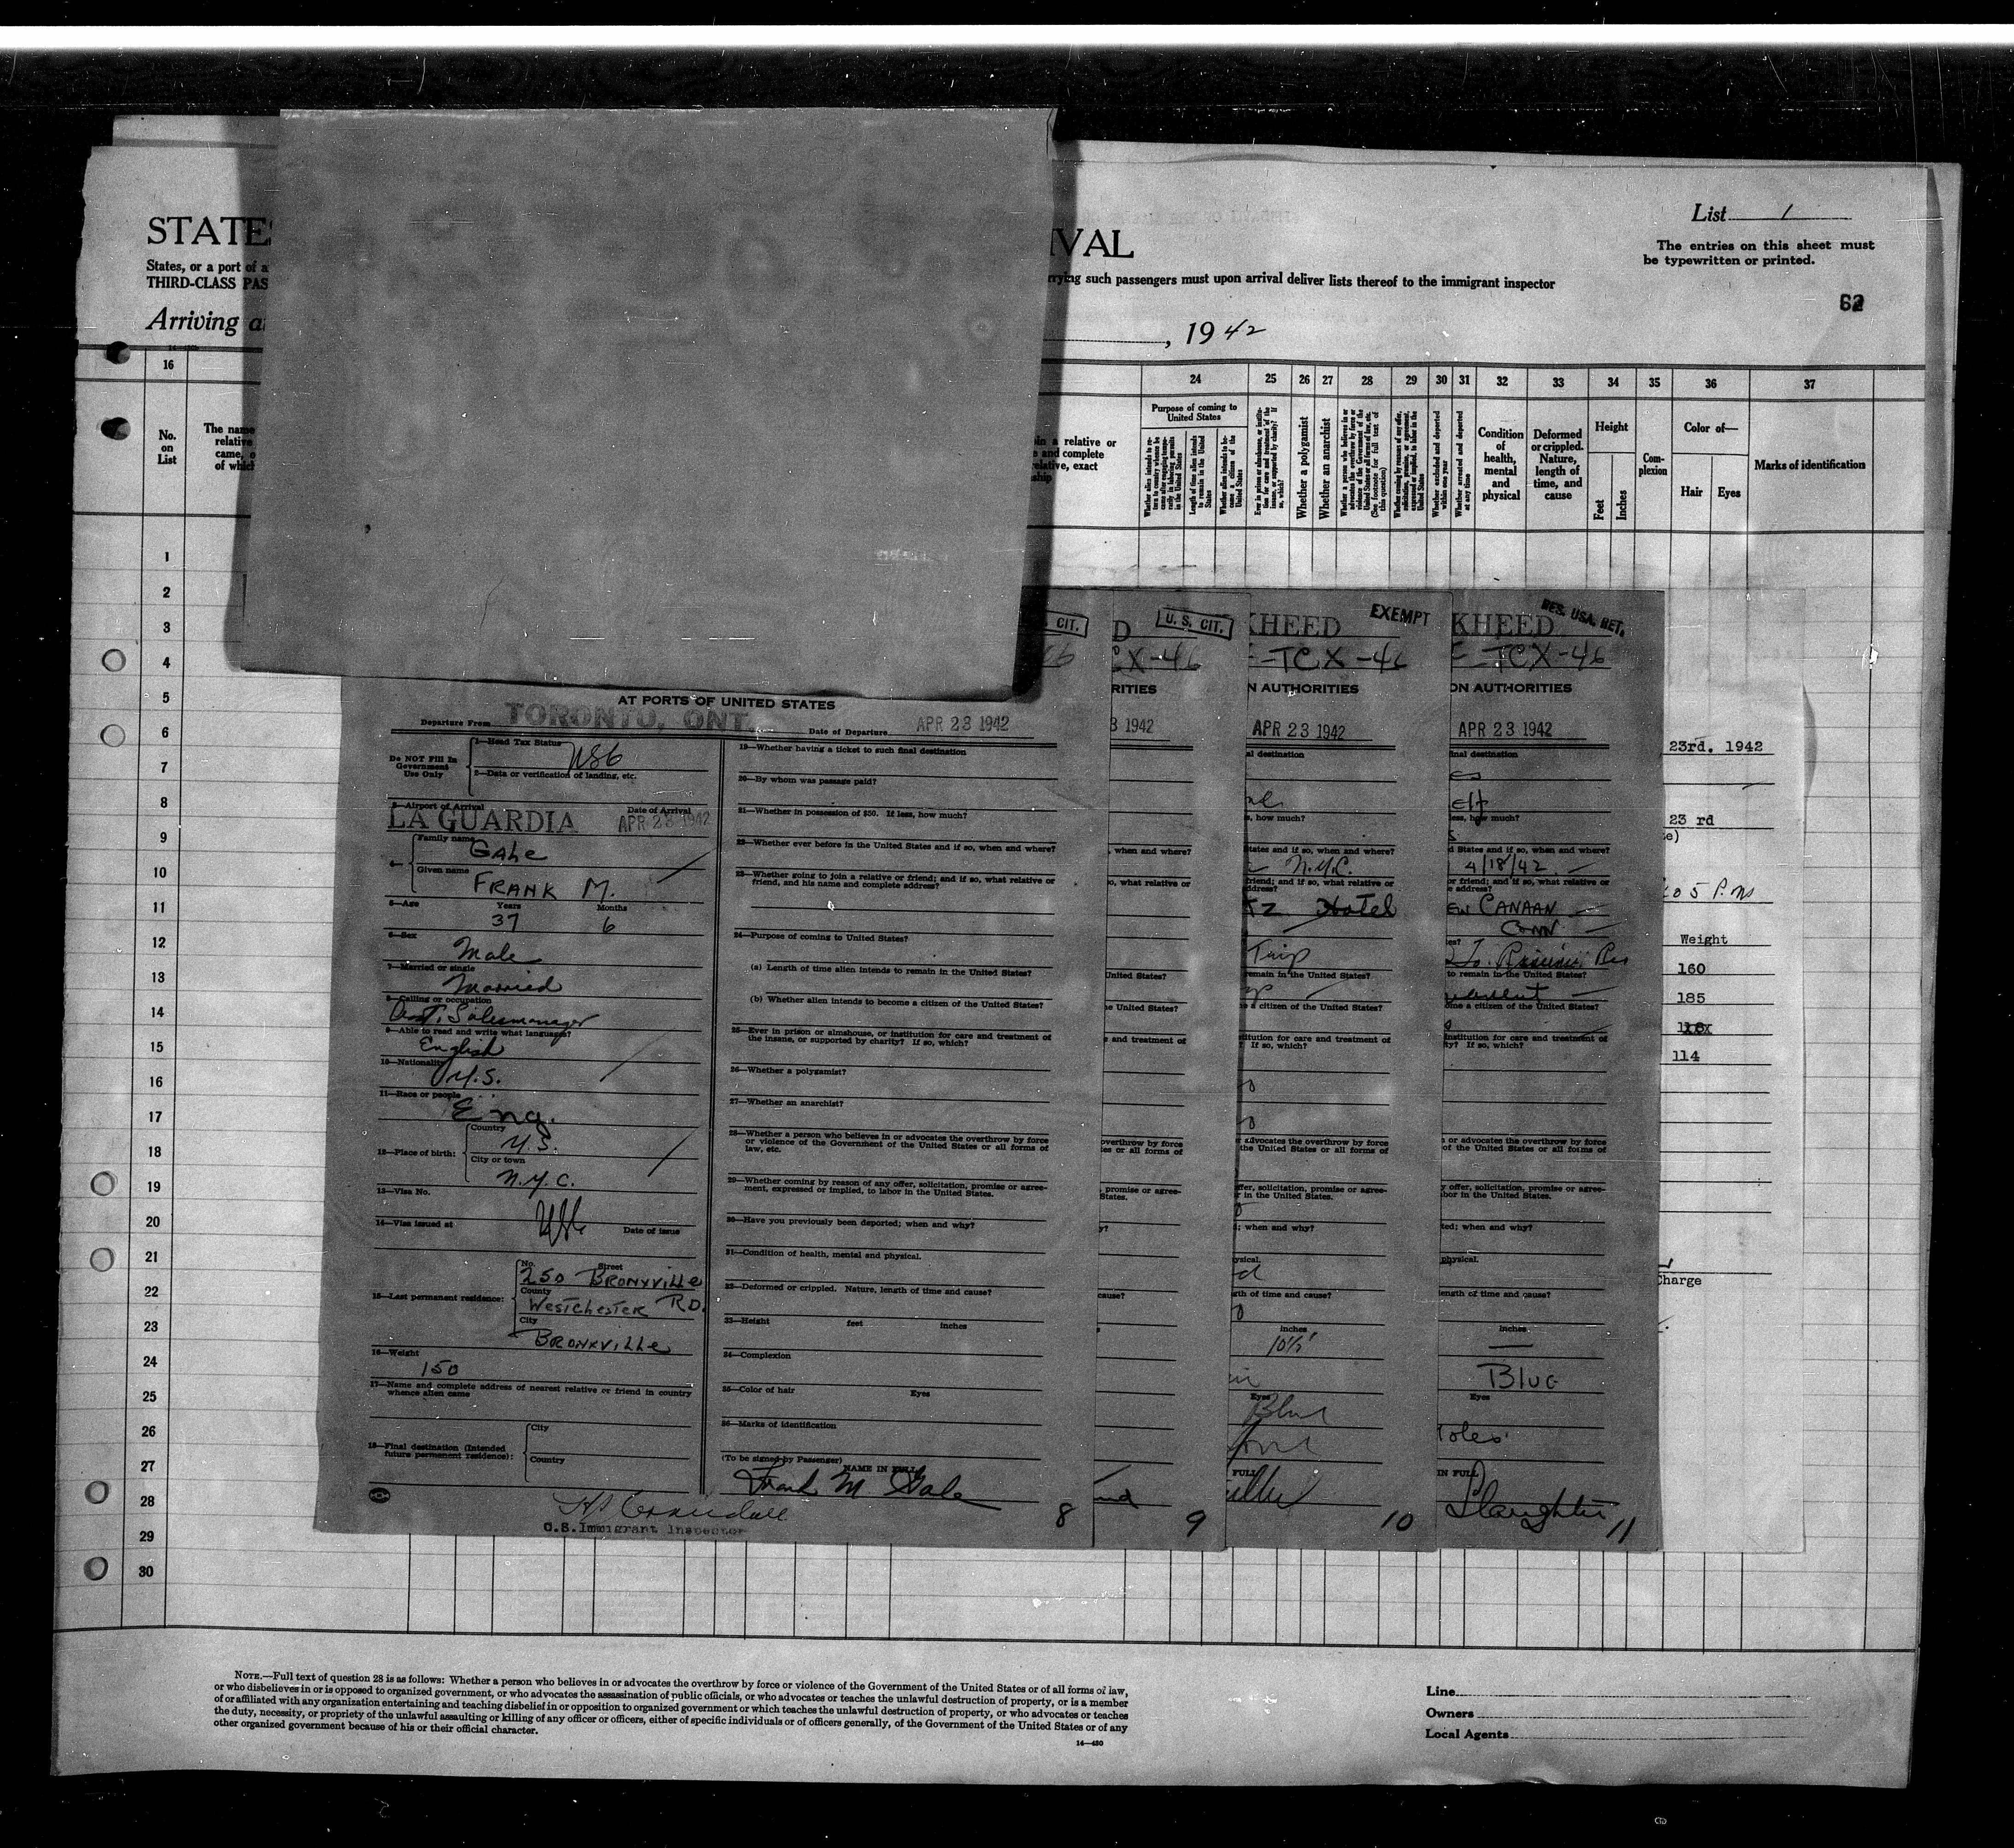 STATE
IVAL
List 1
The entries on this sheet must
be typewritten or printed.
States, or a port of a
THIRD-CLASS PAS
rrying such passengers must upon arrival deliver lists thereof to the immigrant inspector
62
Arriving a
, 1942
16
24
25
26
27
28
29
30
31
32
33
34
35
36
37
No.
on
List
The name
relative
came, o
of which
in a relative or
and complete
relative, exact
ship
Purpose of coming to
United States
Whether a polygamist
Whether an anarchist
Condition
of
health,
mental
and
physical
Deformed
or crippled.
Nature,
length of
time, and
cause
Height
Feet
Inches
Com-
plexion
Color of—
Hair
Eyes
Marks of identification
1
2
3
4
5
6
7
8
9
10
11
12
13
14
15
16
17
18
19
20
21
22
23
24
25
26
27
28
29
30
AT PORTS OF UNITED STATES
Departure From TORONTO, ONT.
Date of Departure APR 23 1942
Do NOT Fill In
Government
Use Only
1—Head Tax Status
USC
2—Data or verification of landing, etc.
3—Airport of Arrival
Date of Arrival
LA GUARDIA APR 23 1942
4—
Family name
GALE
Given name
FRANK M.
5—Age
Years
Months
37 6
6—Sex
Male
7—Married or single
Married
8—Calling or occupation
Asst. Salesmanager
9—Able to read and write what languages?
English
10—Nationality
U.S.
11—Race or people
Eng.
12—Place of birth:
Country
U.S.
City or town
N.Y.C.
13—Visa No.
14—Visa issued at
Date of issue
15—Last permanent residence:
No.
Street
250 BRONXVILLE
County
WESTCHESTER RD.
City
BRONXVILLE
16—Weight
150
17—Name and complete address of nearest relative or friend in country
whence alien came
18—Final destination (Intended
future permanent residence):
City
Country
19—Whether having a ticket to such final destination
20—By whom was passage paid?
21—Whether in possession of $50. If less, how much?
22—Whether ever before in the United States and if so, when and where?
23—Whether going to join a relative or friend; and if so, what relative or
friend, and his name and complete address?
24—Purpose of coming to United States?
(a) Length of time alien intends to remain in the United States?
(b) Whether alien intends to become a citizen of the United States?
25—Ever in prison or almshouse, or institution for care and treatment of
the insane, or supported by charity? If so, which?
26—Whether a polygamist?
27—Whether an anarchist?
28—Whether a person who believes in or advocates the overthrow by force
or violence of the Government of the United States or all forms of
law, etc.
29—Whether coming by reason of any offer, solicitation, promise or agree-
ment, expressed or implied, to labor in the United States.
30—Have you previously been deported; when and why?
31—Condition of health, mental and physical.
32—Deformed or crippled. Nature, length of time and cause?
33—Height feet inches
34—Complexion
35—Color of hair Eyes
36—Marks of identification
(To be signed by Passenger)
NAME IN FULL
Frank M Gale
U.S. Immigrant Inspector
8
CIT.
D
U. S. CIT.
CX-46
RITIES
3 1942
, when and where?
o, what relative or
United States?
e United States?
e and treatment of
overthrow by force
es or all forms of
promise or agree-
States.
y?
cause?
9
KHEED
EXEMPT
-TCX-46
N AUTHORITIES
APR 23 1942
al destination
s, how much?
States and if so, when and where?
N.Y.C.
friend; and if so, what relative or
ddress?
tz Hotel
Trip
remain in the United States?
e a citizen of the United States?
titution for care and treatment of
If so, which?
r advocates the overthrow by force
the United States or all forms of
ffer, solicitation, promise or agree-
r in the United States.
; when and why?
ysical.
gth of time and cause?
inches
10½
Eyes
Blue
FULL
10
KHEED
RES. USA. RET.
TCX-46
ON AUTHORITIES
APR 23 1942
inal destination
es
elf
less, how much?
d States and if so, when and where?
4/18/42
or friend; and if so, what relative or
e address?
EW CANAAN
CONN
to remain in the United States?
ome a citizen of the United States?
institution for care and treatment of
ty? If so, which?
s or advocates the overthrow by force
of the United States or all forms of
y offer, solicitation, promise or agree-
bor in the United States.
ted; when and why?
physical.
length of time and cause?
inches
Blue
Eyes
Moles
IN FULL
Slaughter
11
23rd. 1942
23 rd
te)
05 P.M
Weight
160
185
114
Charge
NOTE.—Full text of question 28 is as follows: Whether a person who believes in or advocates the overthrow by force or violence of the Government of the United States or of all forms of law,
or who disbelieves in or is opposed to organized government, or who advocates the assassination of public officials, or who advocates or teaches the unlawful destruction of property, or is a member
of or affiliated with any organization entertaining and teaching disbelief in or opposition to organized government or which teaches the unlawful destruction of property, or who advocates or teaches
the duty, necessity, or propriety of the unlawful assaulting or killing of any officer or officers, either of specific individuals or of officers generally, of the Government of the United States or of any
other organized government because of his or their official character.
14—430
Line
Owners
Local Agents